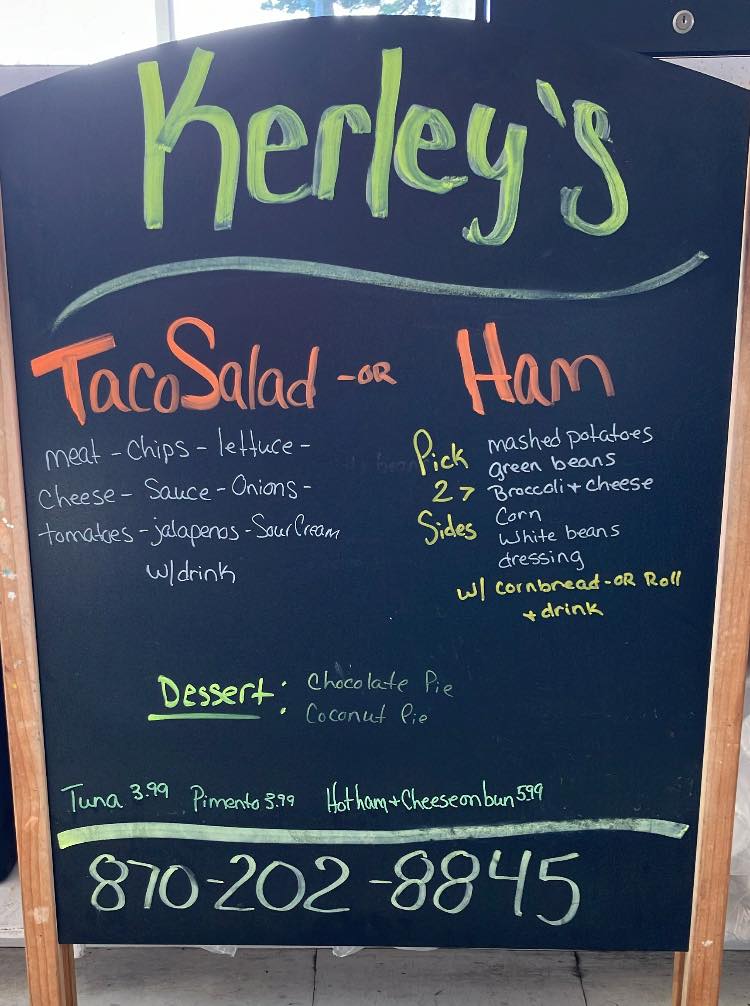 Kerley's
Taco Salad -OR Ham
meat - Chips - lettuce -
Cheese - Sauce - Onions -
tomatoes - jalapenos - Sour Cream
w/drink
Pick
2 >
Sides
mashed potatoes
green beans
Broccoli + cheese
Corn
White beans
dressing
w/ cornbread -OR Roll
+ drink
Dessert: Chocolate Pie
Coconut Pie
Tuna 3.99 Pimento 3.99 Hot ham + Cheese on bun 5.99
870-202-8845